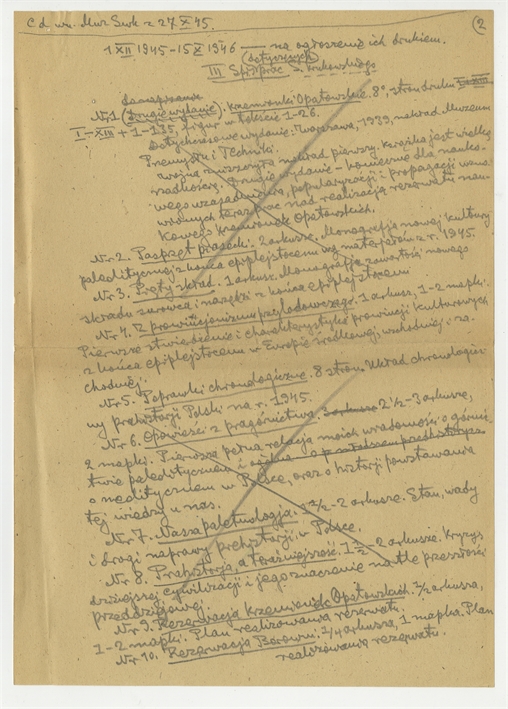 C.d. wn. Muz. Swk z 27.X.45.
2
1 XII 1945 – 15 X 1946 — na ogłoszenie ich drukiem.
dotychczas
III Spis prac S. Krukowskiego
Nr. 1 (drugie wydanie). Krzemionki Opatowskie. 8°, stron druku
I–XIII + 1–135, figur w tekście 1–26.
Dotychczasowe wydanie: Warszawa, 1939, nakład Muzeum
Przemysłu i Techniki.
Wojna zniszczyła nakład pierwszy. Książka jest wielką
rzadkością. Drugie wydanie – konieczne dla nauko-
wego uzasadnienia, popularyzacji i propagacji wzno-
wionych teraz prac nad realizacją rezerwatu nau-
kowego Krzemionek Opatowskich.
Nr. 2. 2 arkusze. Monografja nowej kultury
paleolitycznej z końca epiplejstocenu wg materjałów z r. 1945.
Nr 3. skład. 1 arkusz. Monografja zawartości nowego
składu surowca i narzędzi z końca epiplejstocenu
Nr 4. Z prowincjonizmu przylodowczego. 1 arkusz, 1–2 mapki.
Pierwsze stwierdzenie i charakterystyka prowincji kulturowych
z końca epiplejstocenu w Europie środkowej, wschodniej i za-
chodniej.
Nr 5. Poprawki chronologiczne. 8 stron. Układ chronologicz-
ny prehistorji Polski na r. 1945.
Nr 6. Opowieści z pragórnictwa. 2 ½–3 arkusze,
2 mapki. Pierwsza pełna relacja moich wiadomości o górnic-
twie paleolitycznem i
o neolitycznem w Polsce, oraz o historji powstawania
tej wiedzy u nas.
Nr 7. Nasza paletnologja. 1 ½–2 arkusze. Stan, wady
i drogi naprawy prehistorji w Polsce.
Nr 8. Prahistorja a teraźniejszość. 1 ½–2 arkusze. Kryzys
dzisiejszej cywilizacji i jego znaczenie na tle przeszłości
przeddziejowej.
Nr 9. Rezerwacja Krzemionek Opatowskich. ½ arkusza,
1–2 mapki. Plan realizowania rezerwatu.
Nr 10. Rezerwacja Borowni. ¼ arkusza, 1 mapka. Plan
realizowania rezerwatu.